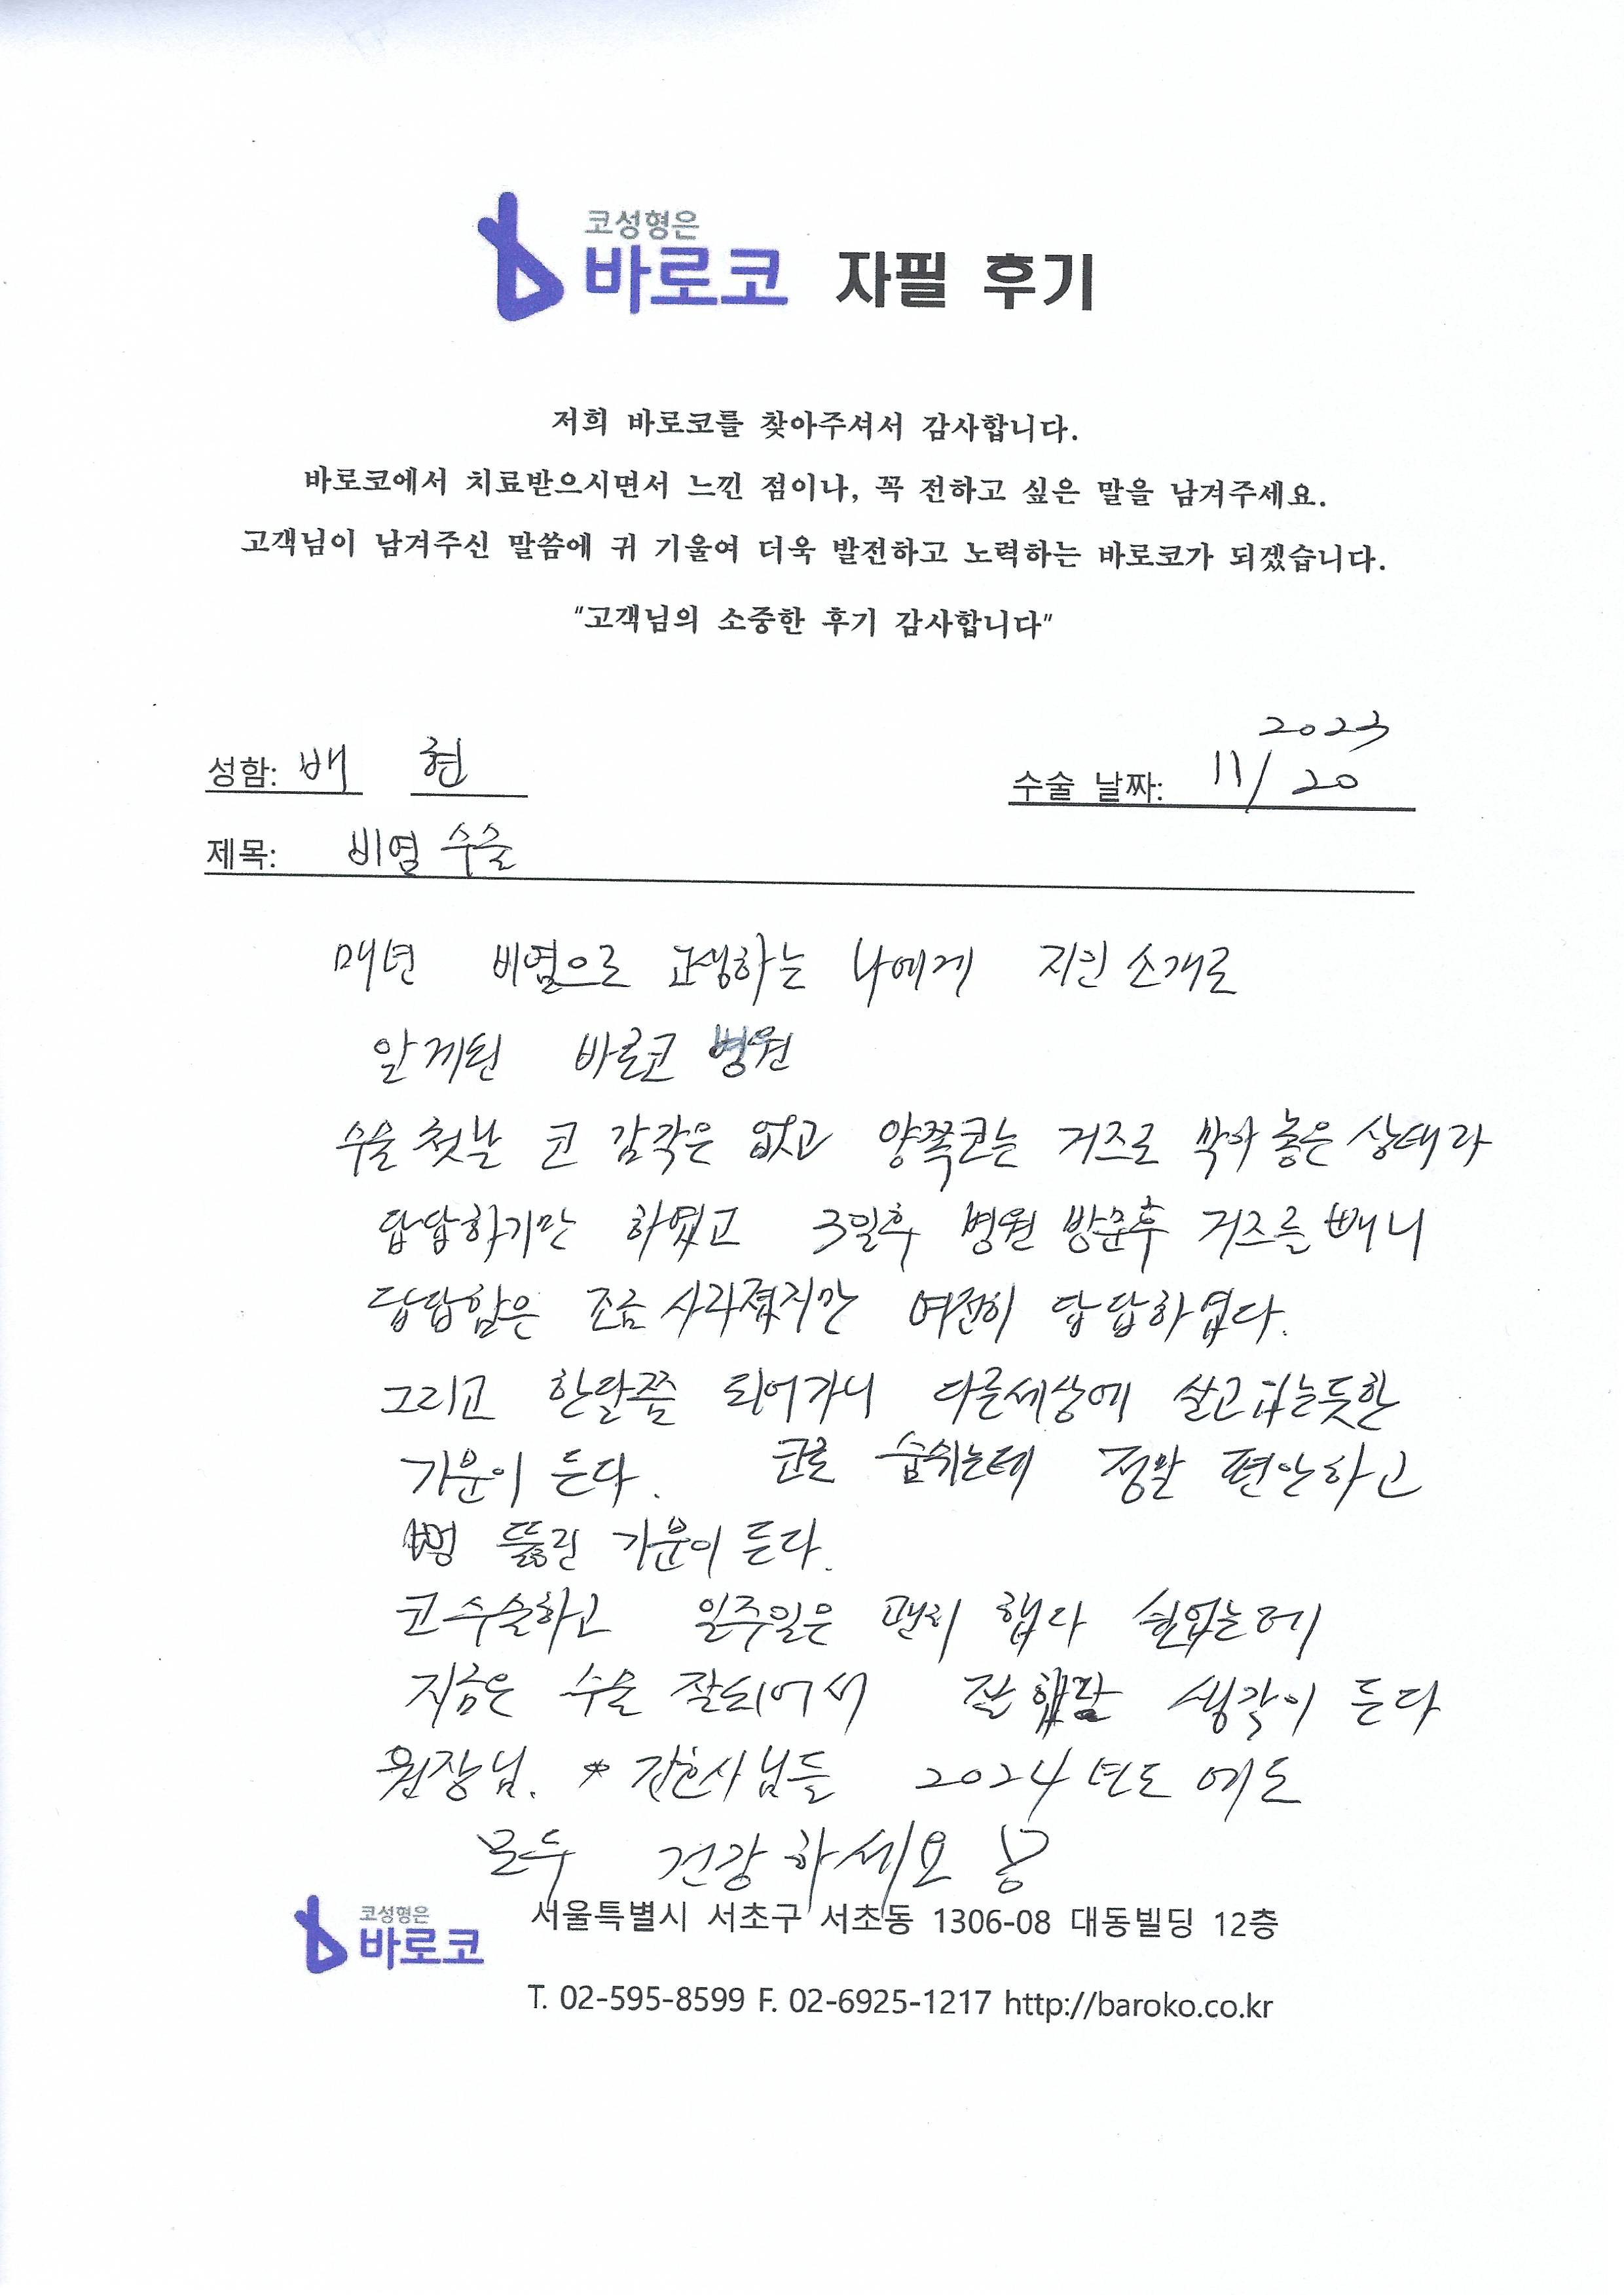 코성형은
바로코 자필 후기
저희 바로코를 찾아주셔서 감사합니다.
바로코에서 치료받으시면서 느낀 점이나, 꼭 전하고 싶은 말을 남겨주세요.
고객님이 남겨주신 말씀에 귀 기울여 더욱 발전하고 노력하는 바로코가 되겠습니다.
"고객님의 소중한 후기 감사합니다"
2023
성함: 배 현 수술 날짜: 11/20
제목: 비염 수술
매년 비염으로 고생하는 나에게 지인 소개로
알게된 바로코 병원
수술 첫날 코 감각은 없고 양쪽코는 거즈로 막아 놓은 상태라
답답하기만 하였고 3일후 병원 방문후 거즈를 빼니
답답함은 조금 사라졌지만 여전히 답답하였다.
그리고 한달쯤 되어가니 다른세상에 살고있는듯한
기운이 든다. 코로 숨쉬는데 정말 편안하고
뻥 뚫린 기운이 든다.
코수술하고 일주일은 괜히 했다 싶었는데
지금은 수술 잘되어서 잘했단 생각이 든다
원장님. * 간호사님들 2024년도에도
모두 건강하세요
코성형은
바로코
서울특별시 서초구 서초동 1306-08 대동빌딩 12층
T. 02-595-8599 F. 02-6925-1217 http://baroko.co.kr